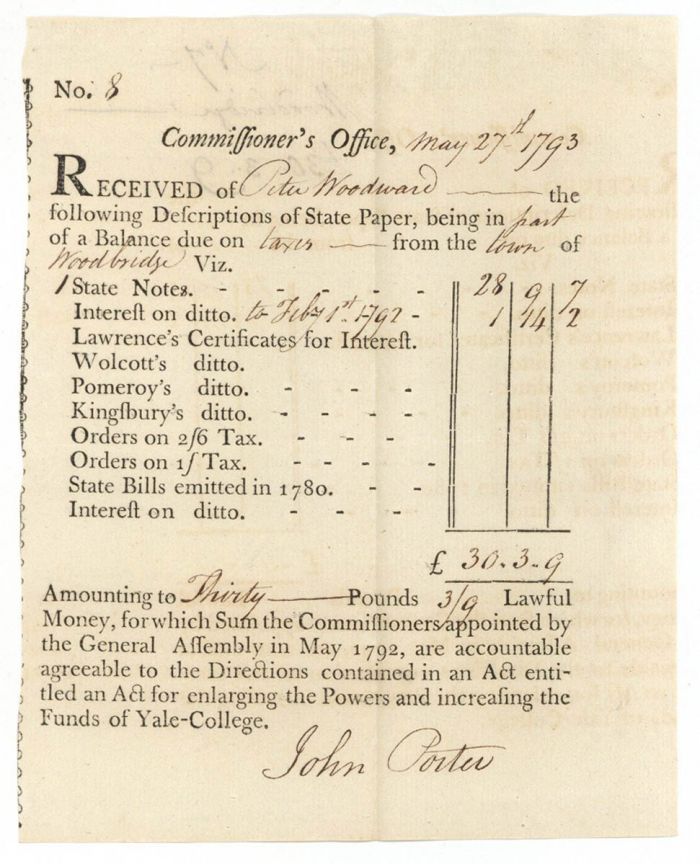 No. 8
Commiſſioner's Office, May 27th 1793
RECEIVED of Peter Woodward the
following Deſcriptions of State Paper, being in part
of a Balance due on taxes from the town of
Woodbridge Viz.
1 State Notes. - - - - - 28 9 7
Intereſt on ditto. to Feby 1st 1792 - 1 14 2
Lawrence's Certificates for Intereſt.
Wolcott's ditto.
Pomeroy's ditto. - - - -
Kingſbury's ditto. - - - -
Orders on 2ſ6 Tax. - - -
Orders on 1ſ Tax. - - - -
State Bills emitted in 1780. - -
Intereſt on ditto. - - - -
£ 30. 3. 9
Amounting to Thirty Pounds 3/9 Lawful
Money, for which Sum the Commiſſioners appointed by
the General Aſſembly in May 1792, are accountable
agreeable to the Directions contained in an Act enti-
tled an Act for enlarging the Powers and increaſing the
Funds of Yale-College.
John Porter